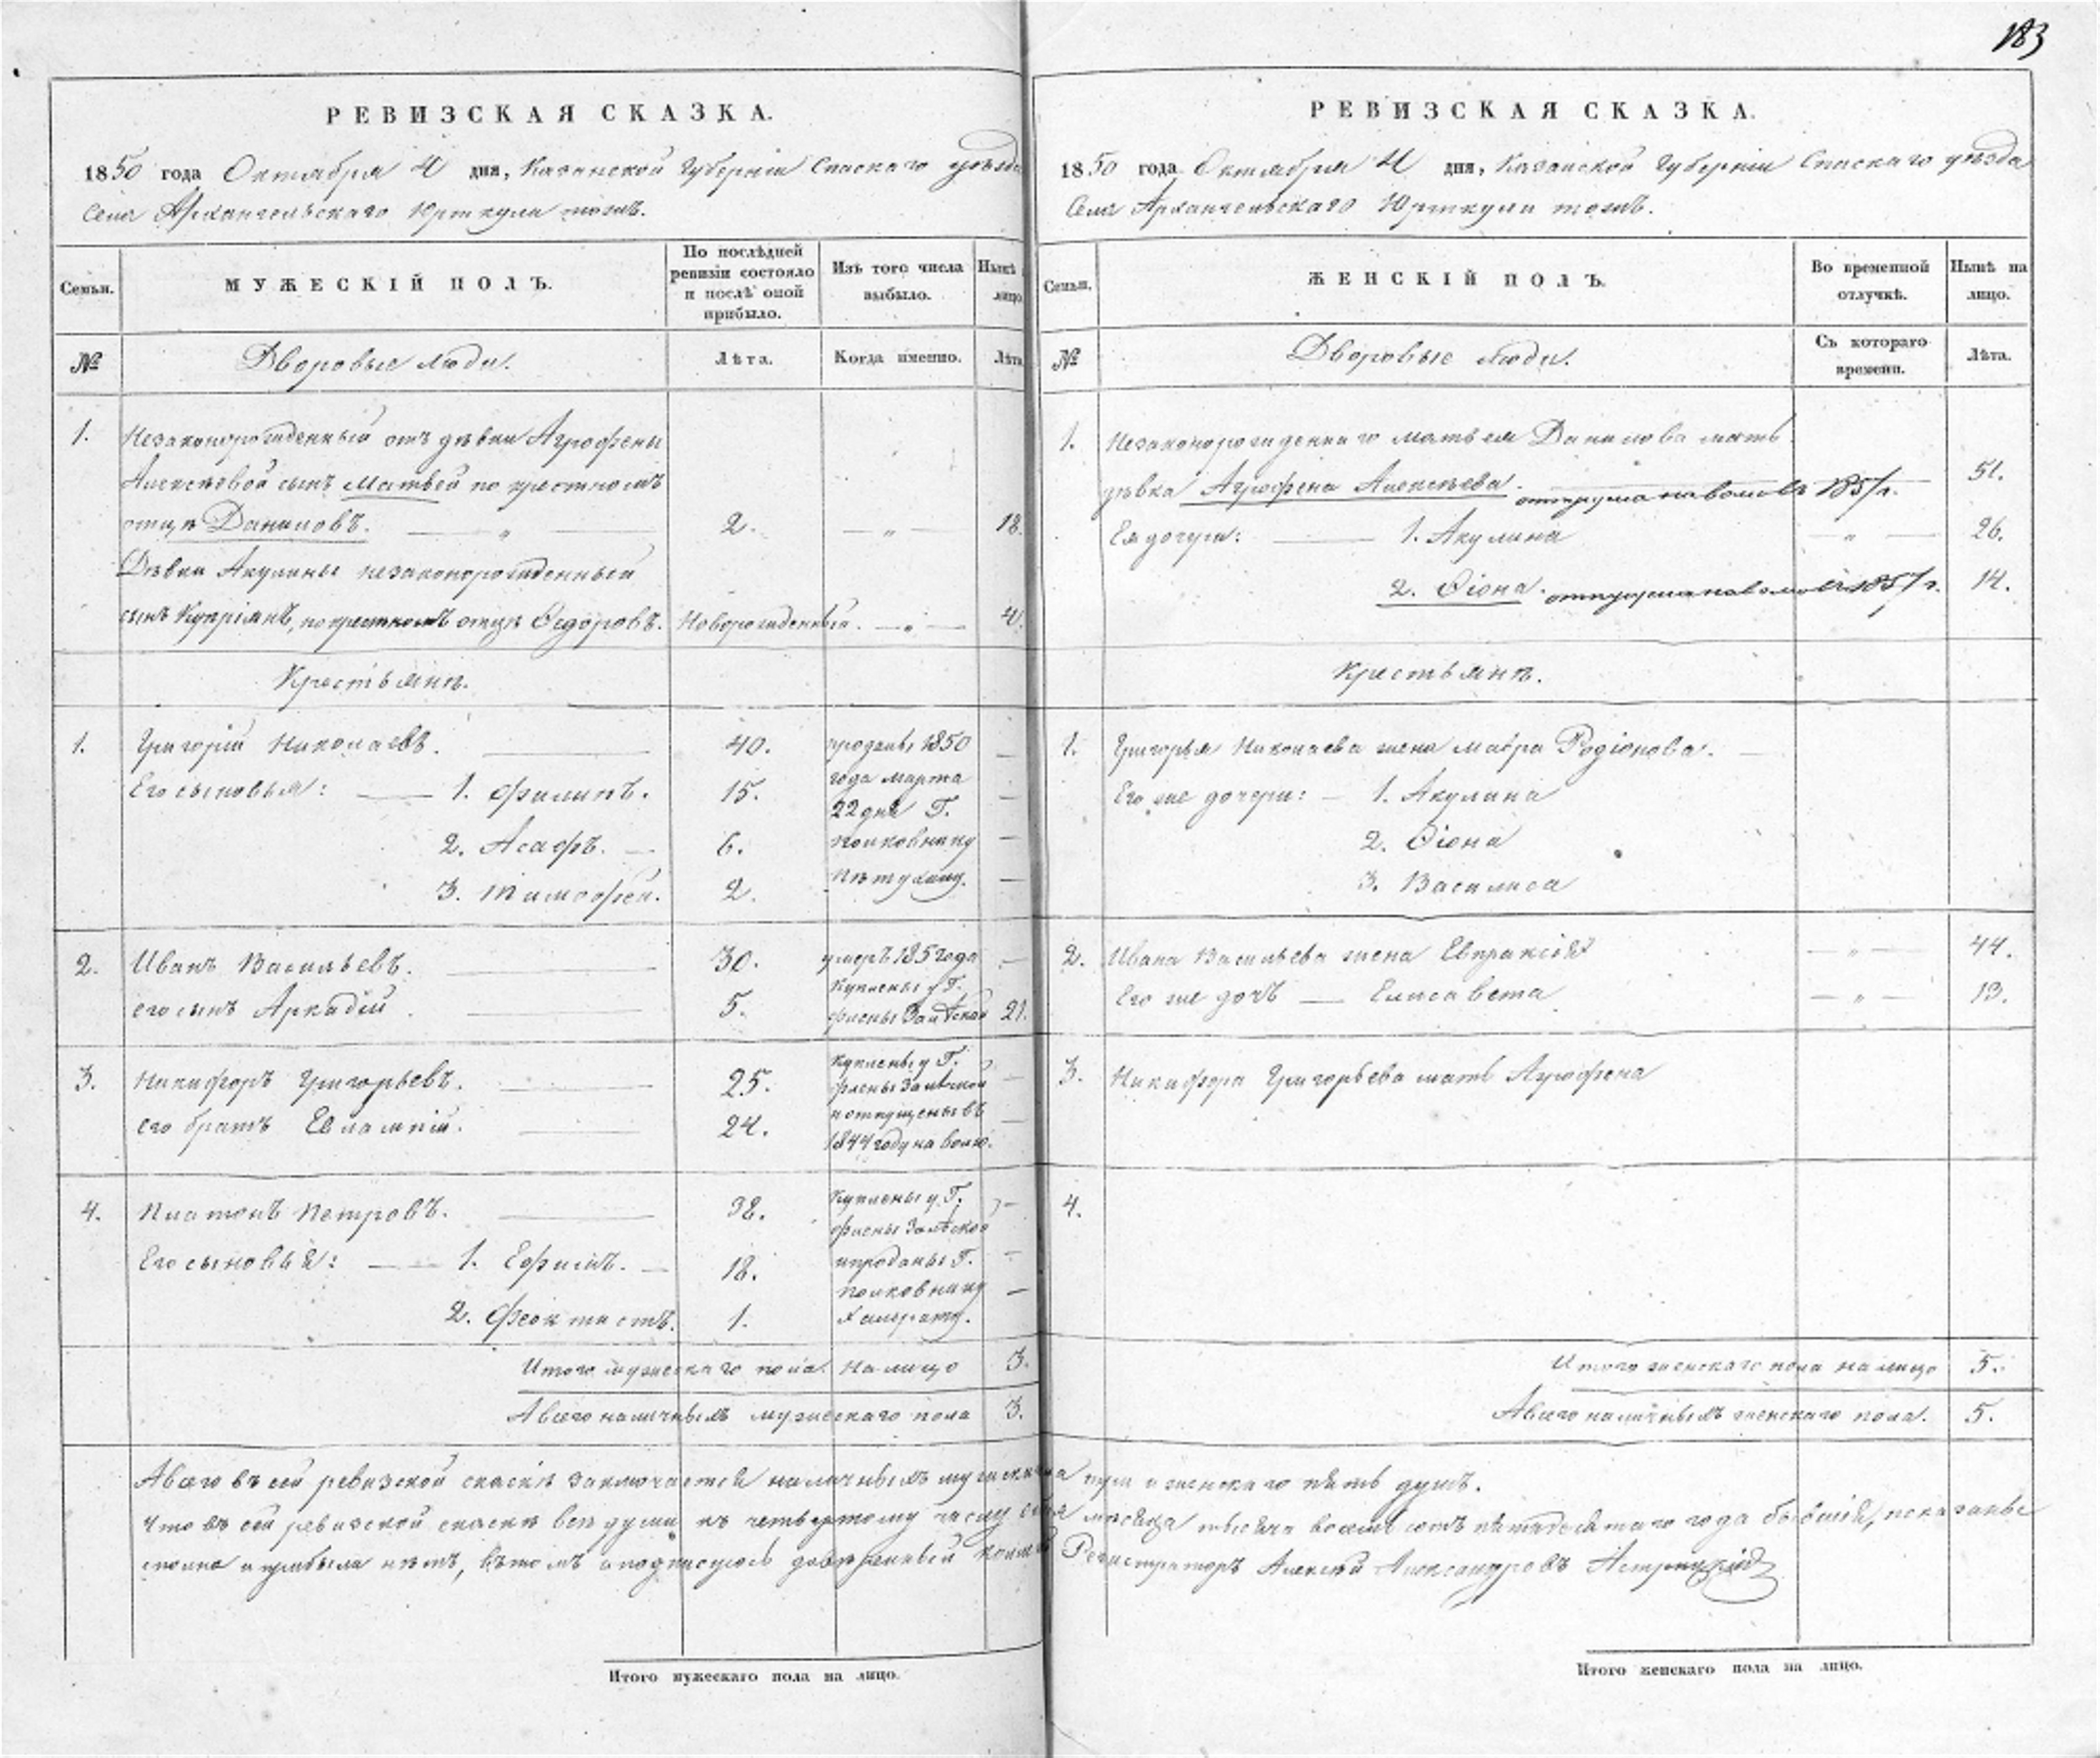 183
РЕВИЗСКАЯ СКАЗКА.
1850 года Октября 4 дня, Казанской Губерніи Спаскаго уѣзда
Села Архангельскаго Юрткули тожъ.
Семьи.
МУЖЕСКІЙ ПОЛЪ.
По послѣдней ревизіи состояло и послѣ оной прибыло.
Изъ того числа выбыло.
Нынѣ лицо
№
Дворовые люди.
Лѣта.
Когда именно.
Лѣта
1. Незаконорожденный отъ дѣвки Агрофены
Алексѣевой сынъ Матвей по крестномъ
отцѣ Даниловъ. — „ — 2. — „ — 18.
Дѣвки Акулины незаконорожденный
сынъ Купріянъ, по крестномъ отцѣ Ѳедоровъ. Новорожденный. — „ — 4.
Крестьянѣ.
1. Григорій Николаевъ. 40. проданы 1850 —
года марта
Его сыновья: — 1. Филипъ. 15. —
22 дня Г.
2. Асафъ. — 6. полковнику —
3. Тимофей. 2. —
2. Иванъ Васильевъ. 30. умеръ 185 года —
Куплены у Г.
его сынъ Аркадій 5. 21.
3. Никифоръ Григорьевъ. 25. Куплены у Г. —
его братъ Евлампій. 24. и отпущены въ —
1844 году на волю.
4. Платонъ Петровъ. 38. Куплены у Г. —
Его сыновья: — 1. Ефимъ. — 18. и проданы Г. —
полковнику
2. Феоктистъ. 1. —
Итого мужескаго пола на лицо 3.
А всего наличныхъ мужескаго пола 3.
РЕВИЗСКАЯ СКАЗКА.
1850 года Октября 4 дня, Казанской Губерніи Спаскаго уѣзда
Села Архангельскаго Юрткули тожъ.
Семьи.
ЖЕНСКІЙ ПОЛЪ.
Во временной отлучкѣ.
Нынѣ на лицо.
№
Дворовые люди.
Съ котораго времени.
Лѣта.
1. Незаконорожденнаго Матвея Данилова мать
дѣвка Агрофена Алексѣева. отпущена на волю въ 1857 г. 51.
Ея дочери: — 1. Акулина — „ — 26.
2. Ѳіона. отпущена на волю въ 1857 г. 14.
Крестьянѣ.
1. Григорья Николаева жена Мавра Родіонова. —
Его же дочери: — 1. Акулина
2. Ѳіона
3. Василиса
2. Ивана Васильева жена Евпраксія — „ — 44.
Его же дочь — Елисавета — „ — 13.
3. Никифора Григорьева мать Агрофена
4.
Итого женскаго пола на лицо 5.
А всего наличныхъ женскаго пола. 5.
А всего въ сей ревизской сказкѣ заключается наличныхъ мужескаго три и женскаго пять душъ.
Что въ сей ревизской сказкѣ всѣ души къ четвертому числу сего месяца тысяча восемь сотъ пятидесятаго года бывшія, показаны
сполна и прибыли нѣтъ, въ томъ и подписуюсь довѣренный Регистраторъ Алексѣй Александровъ
Итого мужескаго пола на лицо.
Итого женскаго пола на лицо.